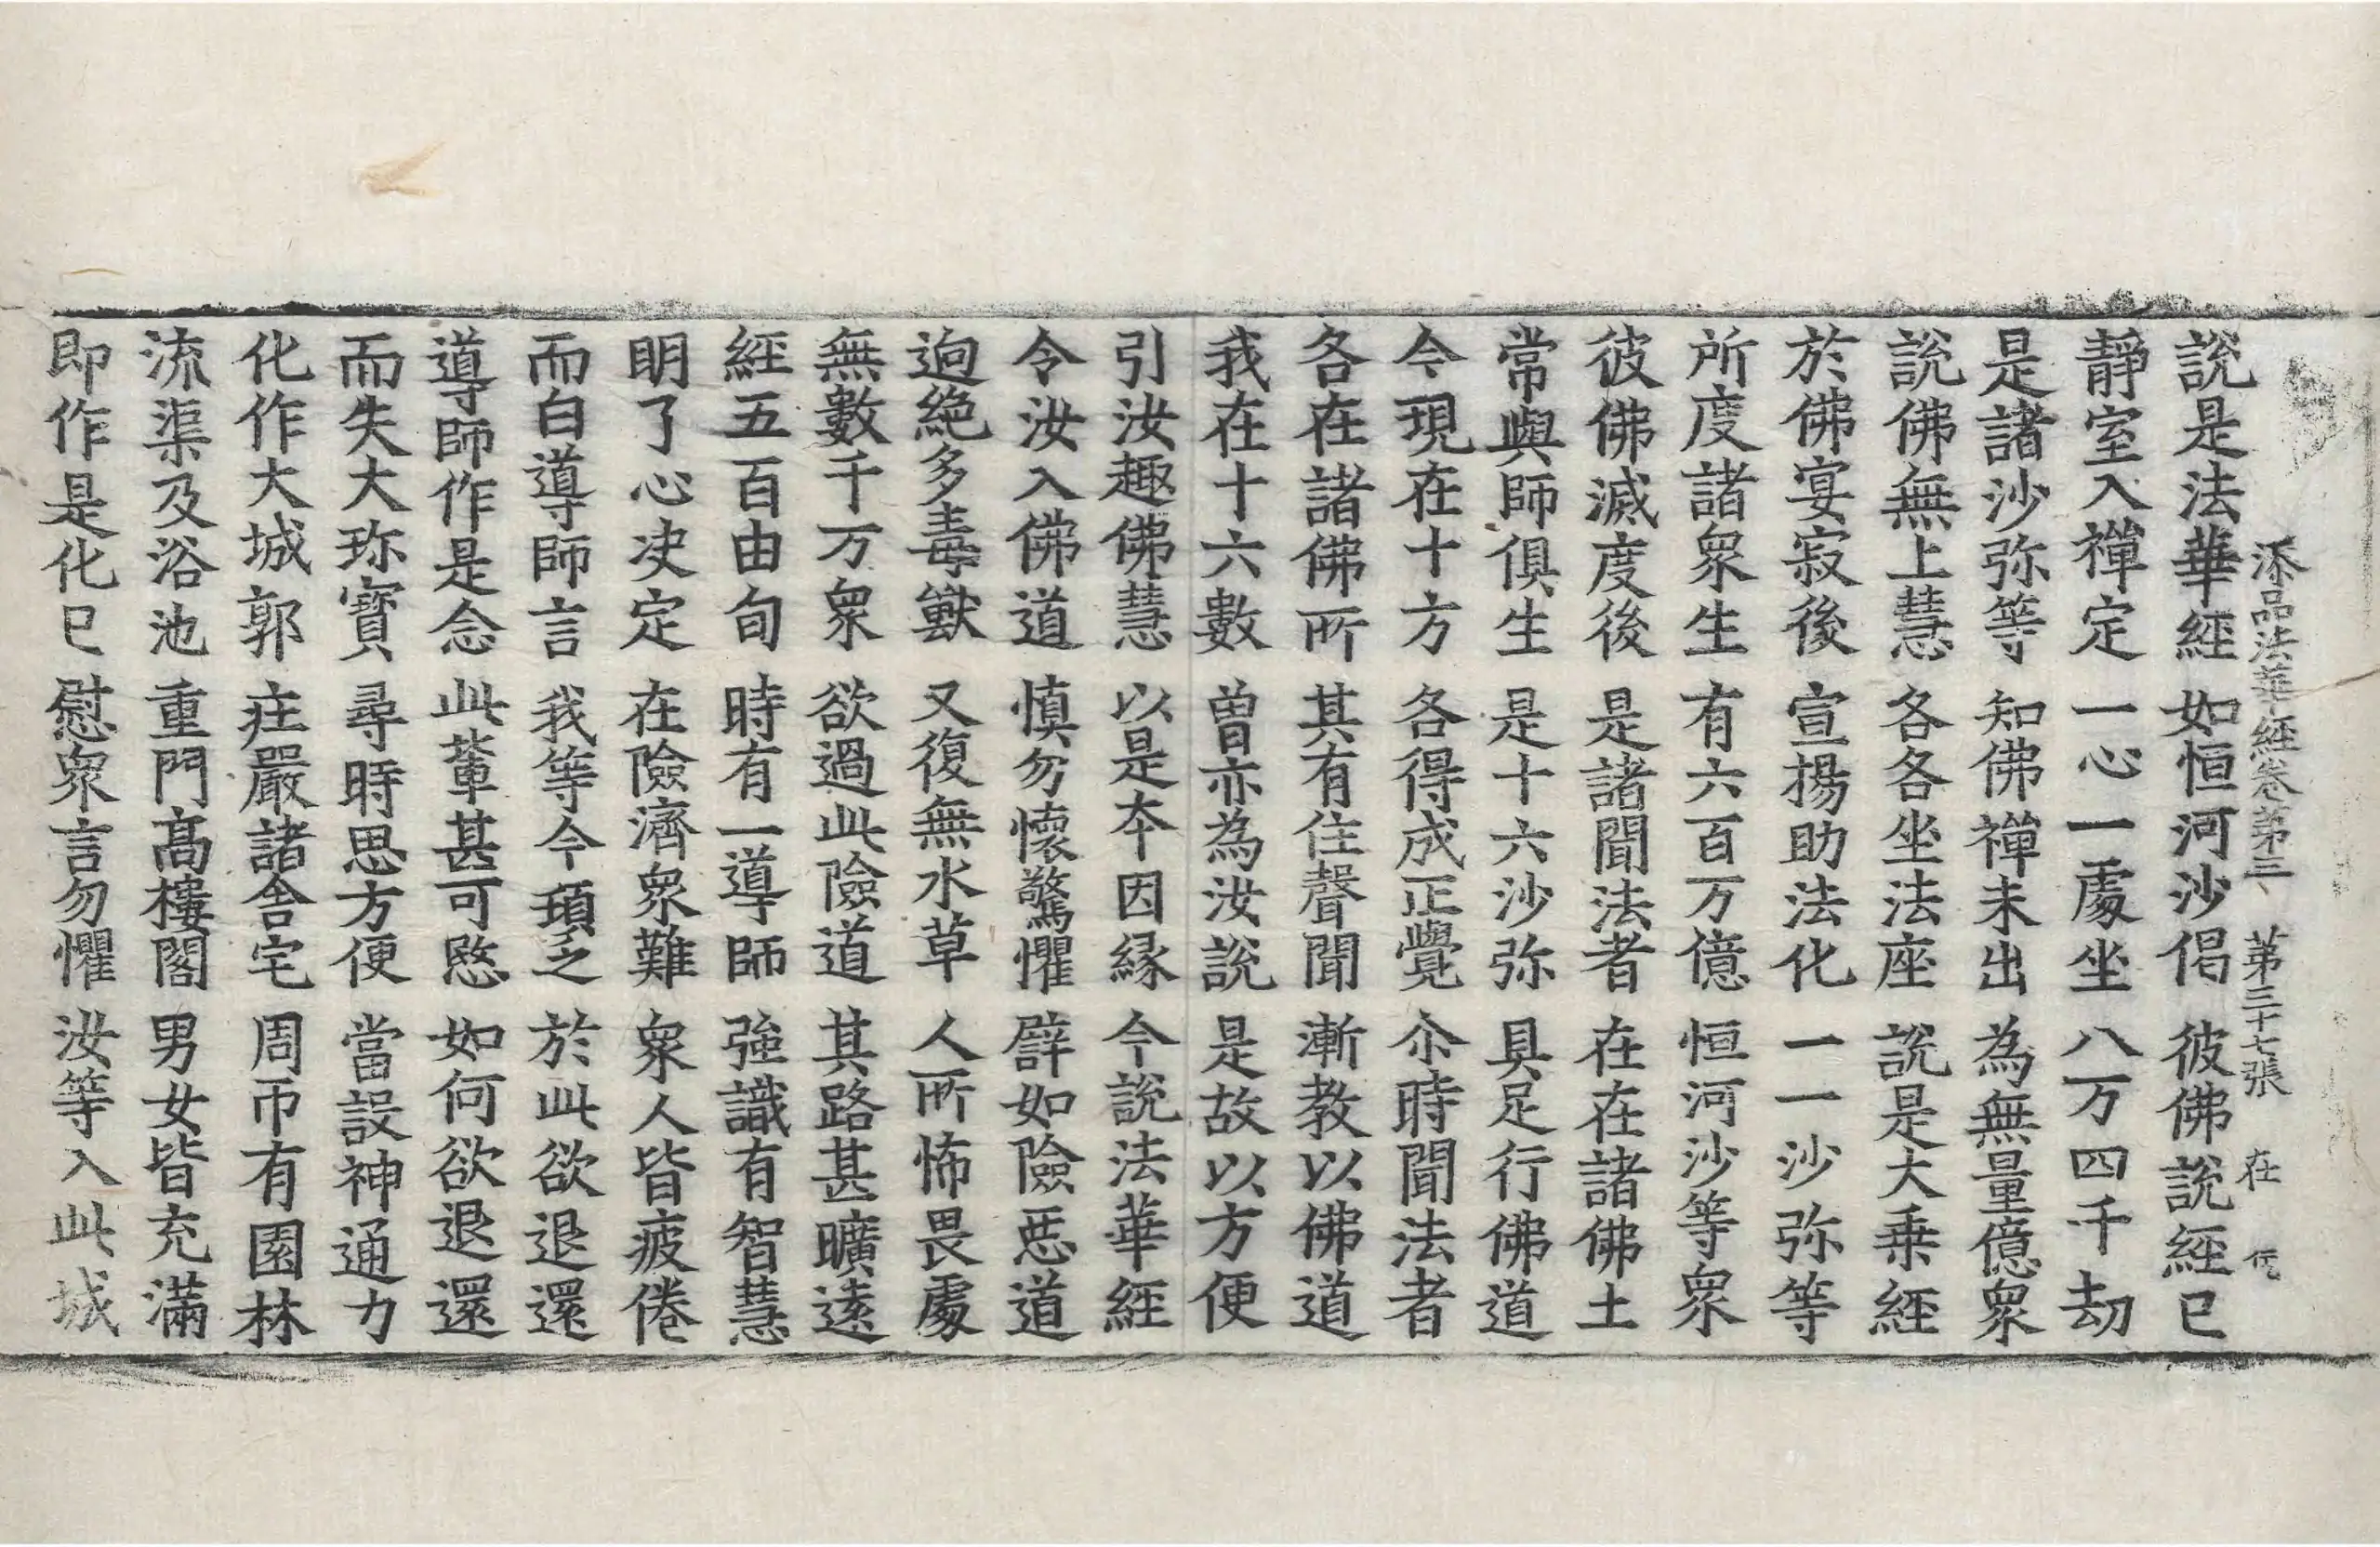 添品法華經卷第三 第三十七張 在
說是法華經 如恒河沙偈 彼佛說經已
靜室入禪定 一心一處坐 八万四千劫
是諸沙弥等 知佛禪未出 為無量億衆
說佛無上慧 各各坐法座 說是大乗經
於佛宴寂後 宣揚助法化 一一沙弥等
所度諸衆生 有六百万億 恒河沙等衆
彼佛滅度後 是諸聞法者 在在諸佛土
常與師俱生 是十六沙弥 具足行佛道
今現在十方 各得成正覺 尒時聞法者
各在諸佛所 其有住聲聞 漸教以佛道
我在十六數 曽亦為汝說 是故以方便
引汝趣佛慧 以是夲因縁 今說法華經
令汝入佛道 慎勿懷驚懼 譬如險惡道
逈絶多毒獸 又復無水草 人所怖畏處
無數千万衆 欲過此險道 其路甚曠遠
經五百由旬 時有一導師 強識有智慧
明了心决定 在險濟衆難 衆人皆疲倦
而白導師言 我等今頓乏 於此欲退還
導師作是念 此軰甚可愍 如何欲退還
而失大珎寶 尋時思方便 當設神通力
化作大城郭 莊嚴諸舍宅 周帀有園林
流渠及浴池 重門髙樓閣 男女皆充滿
即作是化已 慰衆言勿懼 汝等入此城